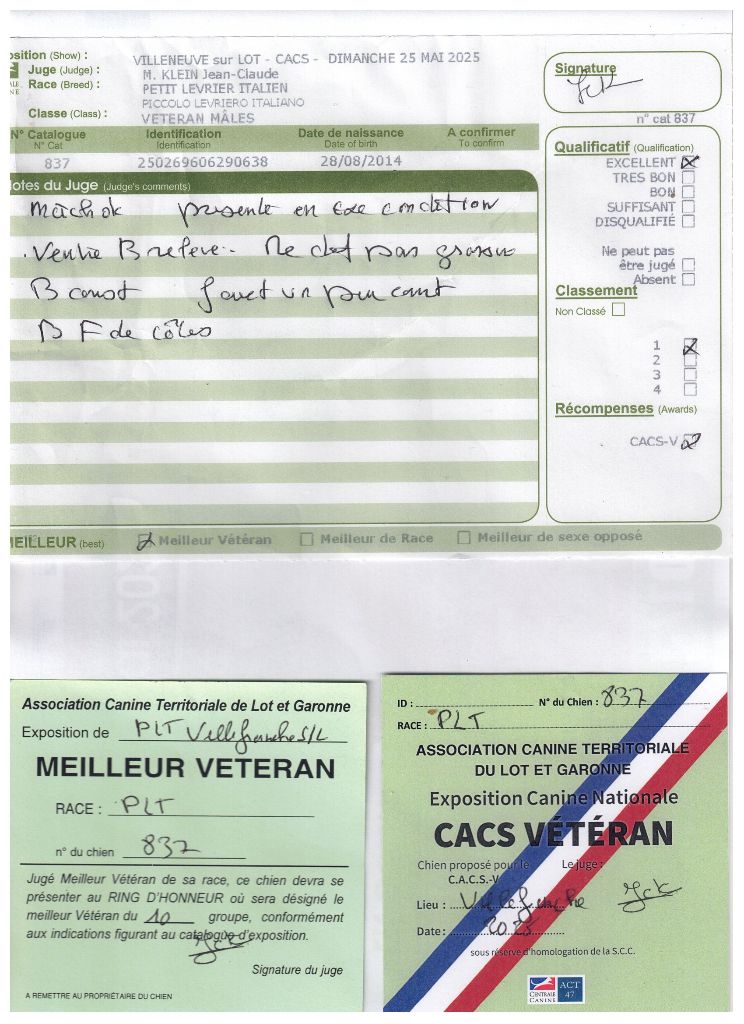 osition (Show) : VILLENEUVE sur LOT - CACS - DIMANCHE 25 MAI 2025
Juge (Judge) : M. KLEIN Jean-Claude
Race (Breed) : PETIT LEVRIER ITALIEN
PICCOLO LEVRIERO ITALIANO
Classe (Class) : VETERAN MÂLES
N° Catalogue Identification Date de naissance A confirmer
N° Cat Identification Date of birth To confirm
837 250269606290638 28/08/2014
otes du Juge (Judge's comments)
présente en exe condition
Ventre B relevé. Ne doit pas grossir
B const
B F de côtes
Signature
JCK
n° cat 837
Qualificatif (Qualification)
EXCELLENT
TRES BON
BON
SUFFISANT
DISQUALIFIÉ
Ne peut pas
être jugé
Absent
Classement
Non Classé
1
2
3
4
Récompenses (Awards)
CACS-V
MEILLEUR (best) Meilleur Vétéran Meilleur de Race Meilleur de sexe opposé
Association Canine Territoriale de Lot et Garonne
Exposition de PLT Villefranche S/L
MEILLEUR VETERAN
RACE : PLT
n° du chien 837
Jugé Meilleur Vétéran de sa race, ce chien devra se
présenter au RING D'HONNEUR où sera désigné le
meilleur Vétéran du 10 groupe, conformément
aux indications figurant au catalogue d'exposition.
JCK
Signature du juge
A REMETTRE AU PROPRIÉTAIRE DU CHIEN
ID : N° du Chien : 837
RACE : PLT
ASSOCIATION CANINE TERRITORIALE
DU LOT ET GARONNE
Exposition Canine Nationale
CACS VÉTÉRAN
Chien proposé pour le Le juge :
C.A.C.S.-V
Lieu : Villefranche JCK
Date : 2025
sous réserve d'homologation de la S.C.C.
CENTRALE CANINE
ACT 47